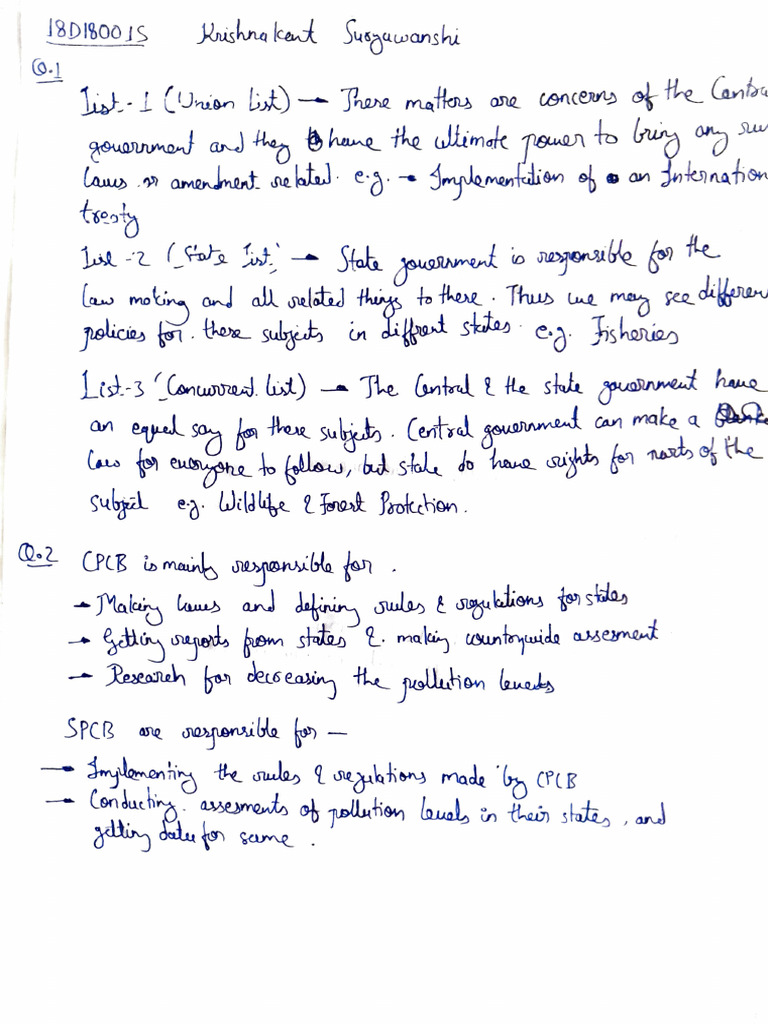 18D180015 Krishnakant Suryawanshi
Q.1
List-1 (Union List) → These matters are concerns of the Centra
government and they have the ultimate power to bring any
laws or amendment related. e.g. → Implementation of an Internation
treaty
List-2 (State List) → State government is responsible for the
law making and all related things to these. Thus we may see differen
policies for these subjects in diffrent states. e.g. Fisheries
List-3 (Concurrent list) → The Central & the state government have
an equal say for these subjects. Central government can make a
law for everyone to follow, but state do have rights for parts of the
subject e.g. Wildlife & Forest Protection.
Q.2 CPCB is mainly responsible for .
→ Making laws and defining rules & regulations for states
→ Getting reports from states & making countrywide assesment
→ Research for decreasing the pollution levels
SPCB are responsible for —
→ Implementing the rules & regulations made by CPCB
→ Conducting assesments of pollution levels in their states, and
getting data for same.